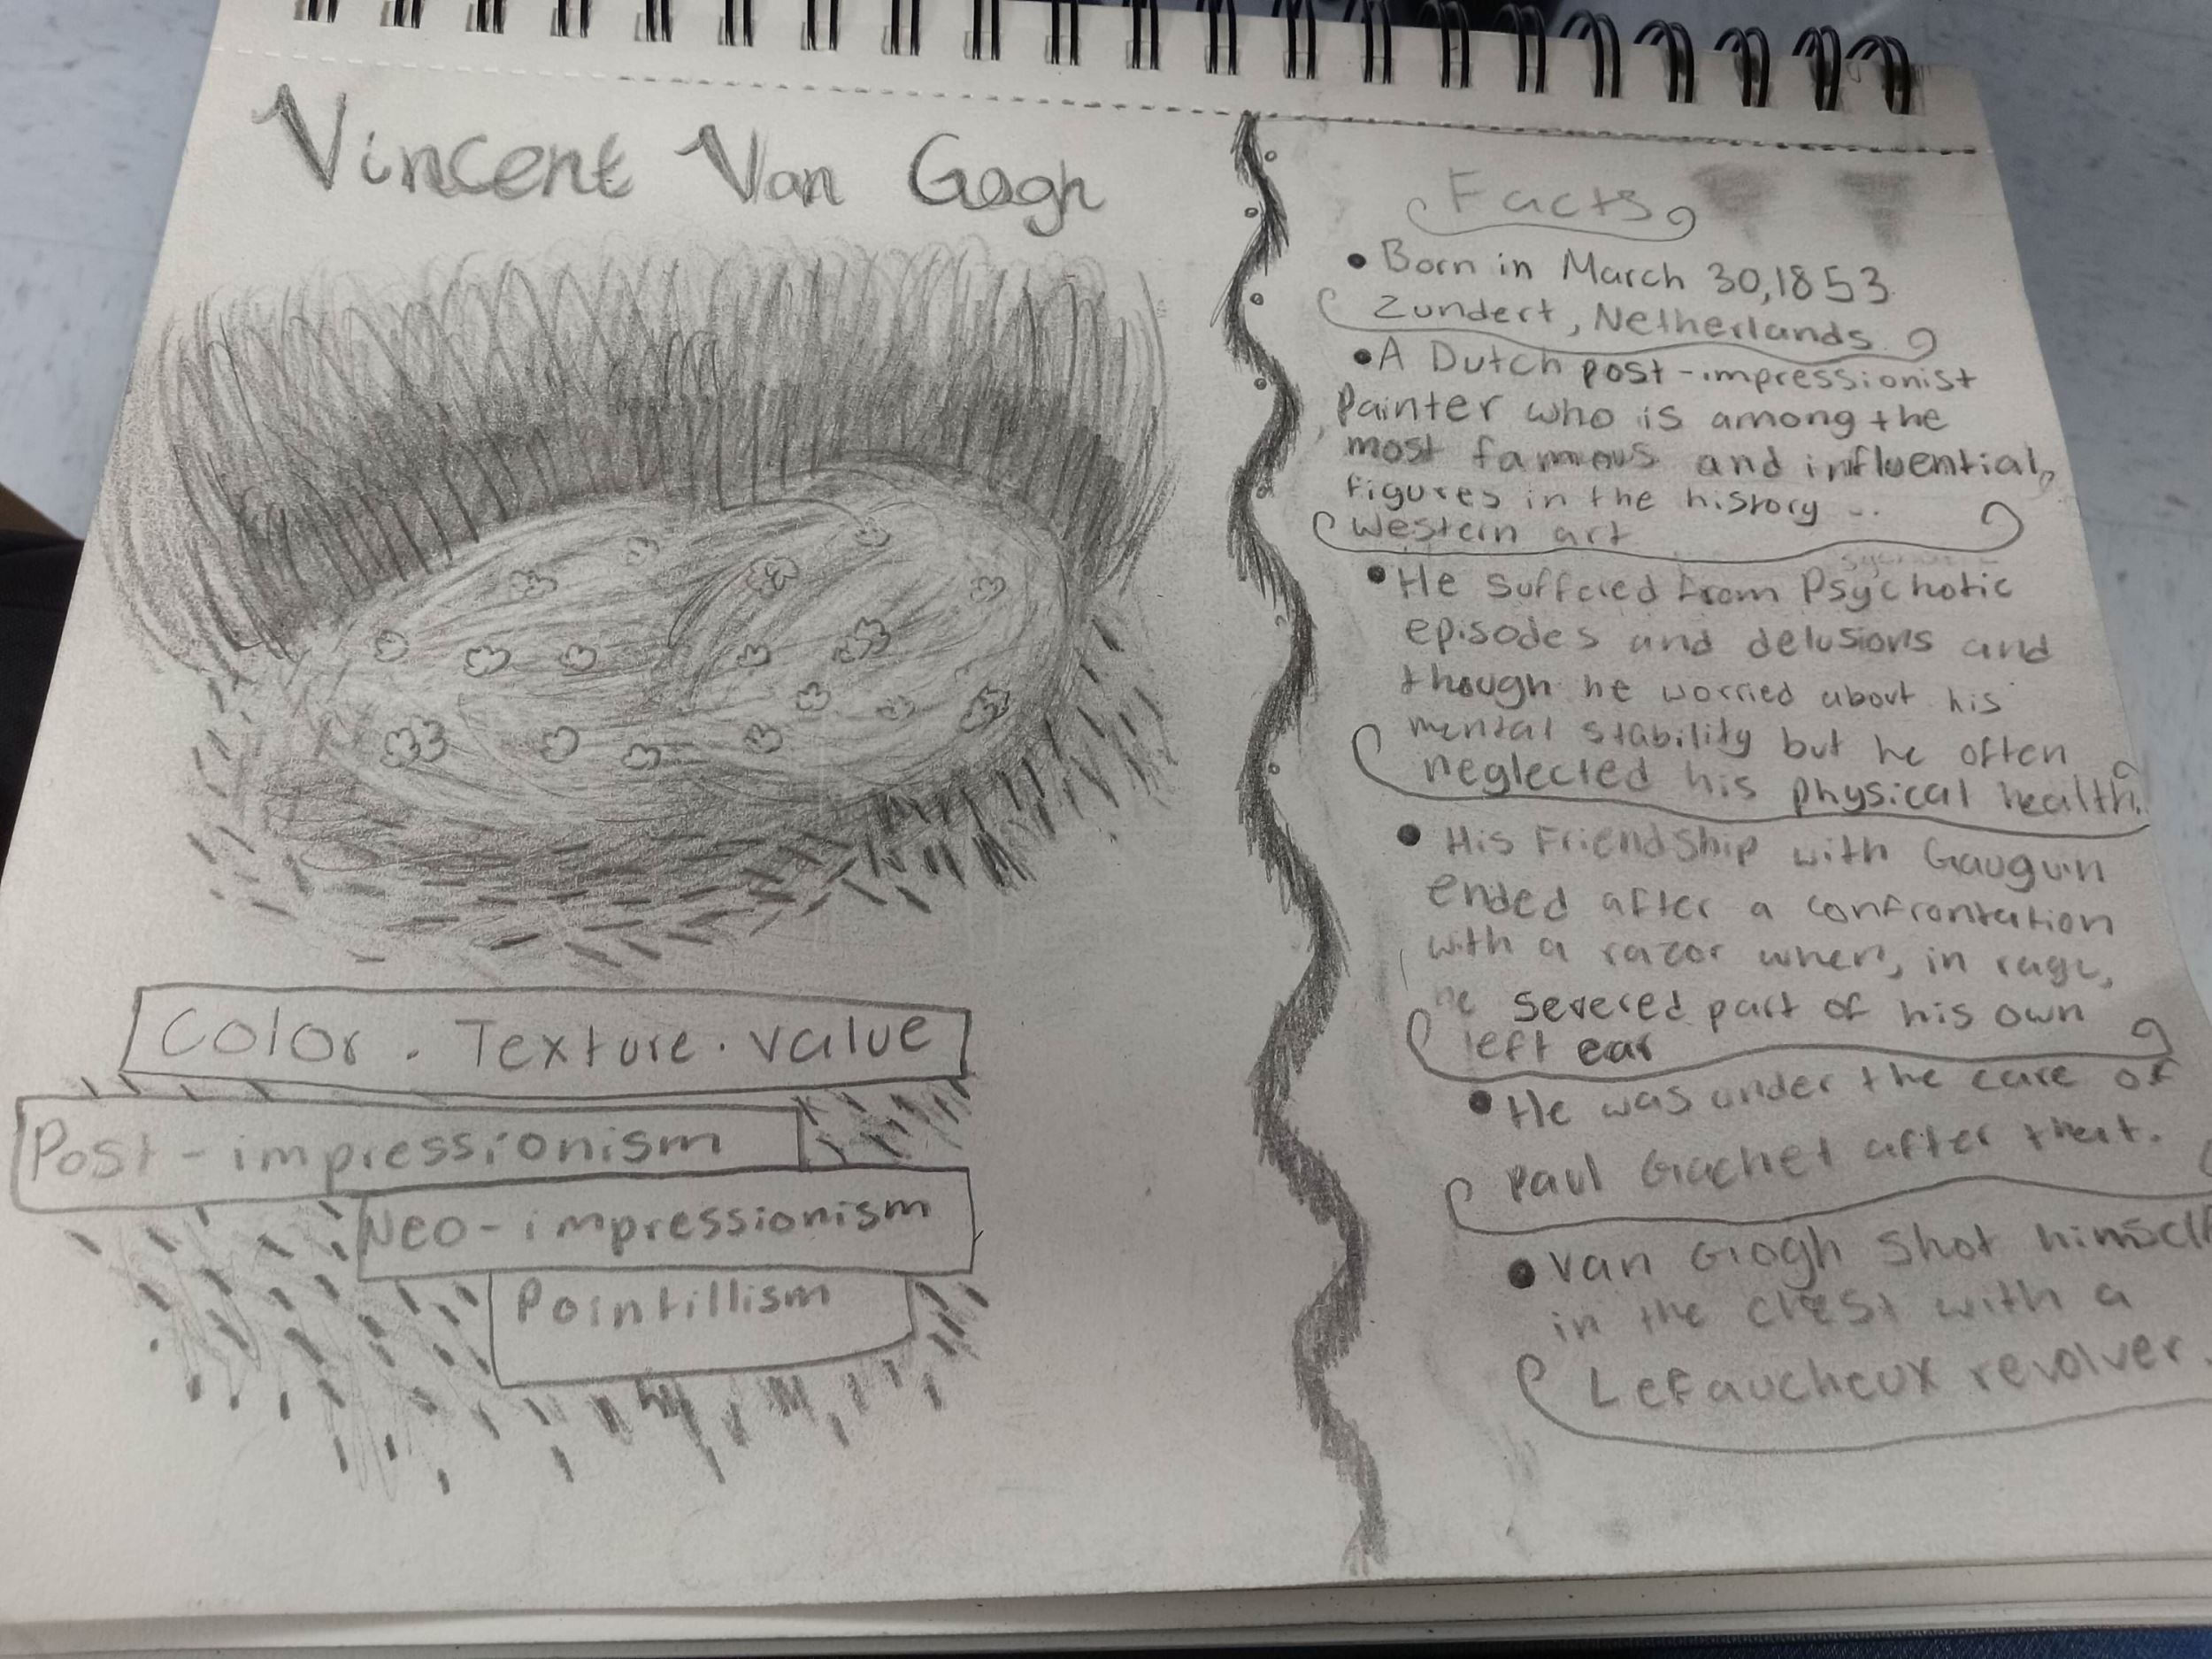 Vincent Van Gogh
Color . Texture . value
Post - impressionism
Neo - impressionism
Pointillism
Facts
• Born in March 30, 1853
Zundert, Netherlands
• A Dutch post - impressionist
Painter who is among the
most famous and influential,
figures in the history ..
western art
• He suffered from Psychotic
episodes and delusions and
though he worried about his
mental stability but he often
neglected his physical health.
• His Friendship with Gauguin
ended after a confrontation
with a razor when, in rage,
he severed part of his own
left ear
• He was under the care of
Paul Gachet after that.
• Van Gogh shot himself
in the chest with a
Lefaucheux revolver.